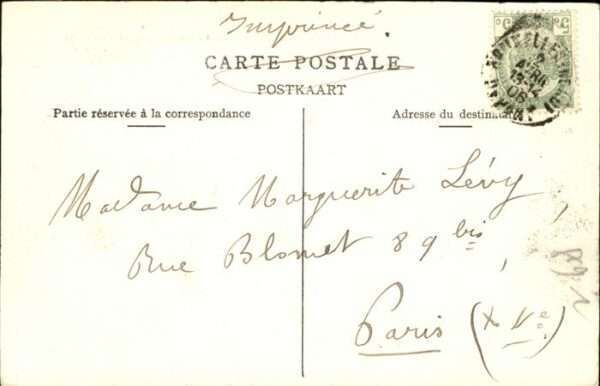 Imprimé.
CARTE POSTALE
POSTKAART
Partie réservée à la correspondance
Adresse du destinat
Madame Marguerite Lévy,
Rue Blomet 89 bis
Paris (XVe)